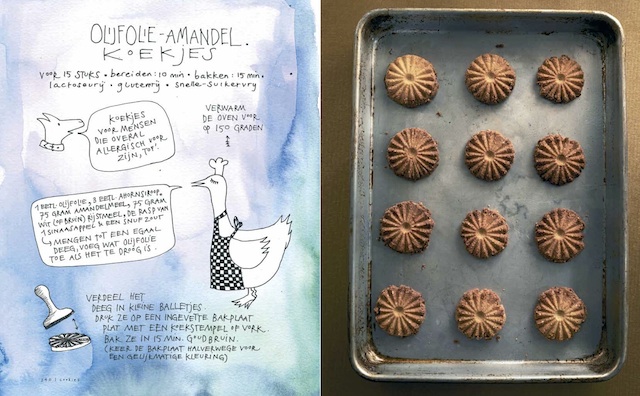 OLIJFOLIE-AMANDEL.
KOEKJES
VOOR 15 STUKS • bereiden: 10 min • bakken: 15 min •
lactosevrij • glutenvrij • snelle-suikervrij
KOEKJES
VOOR MENSEN
DIE OVERAL
ALLERGISCH VOOR
ZIJN, TOF!
VERWARM
DE OVEN VOOR
OP 150 GRADEN
1 EETL OLIJFOLIE, 3 EETL AHORNSIROOP.
75 GRAM AMANDELMEEL, 75 GRAM
WIT (OF BRUIN) RIJSTMEEL, DE RASP VAN
1 SINAASAPPEL & EEN SNUF ZOUT
MENGEN TOT EEN EGAAL
DEEG, VOEG WAT OLIJFOLIE
TOE ALS HET TE DROOG IS.
VERDEEL HET
DEEG IN KLEINE BALLETJES.
DRUK ZE OP EEN INGEVETTE BAKPLAAT
PLAT MET EEN KOEKSTEMPEL OF VORK.
BAK ZE IN 15 MIN. GOUDBRUIN.
(KEER DE BAKPLAAT HALVERWEGE VOOR
EEN GELIJKMATIGE KLEURING)